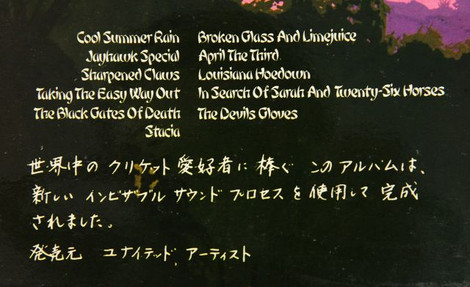 Cool Summer Rain
Jayhawk Special
Sharpened Claws
Taking The Easy Way Out
The Black Gates Of Death
Stacia
Broken Glass And Limejuice
April The Third
Louisiana Hoedown
In Search Of Sarah And Twenty-Six Horses
The Devils Gloves
世界中の クリケット 愛好者に 棒ぐ このアルバムは、
新しい インビザブル サウンド プロセスを使用して 完成
されました。
発売元 ユナイテッド、アーティスト